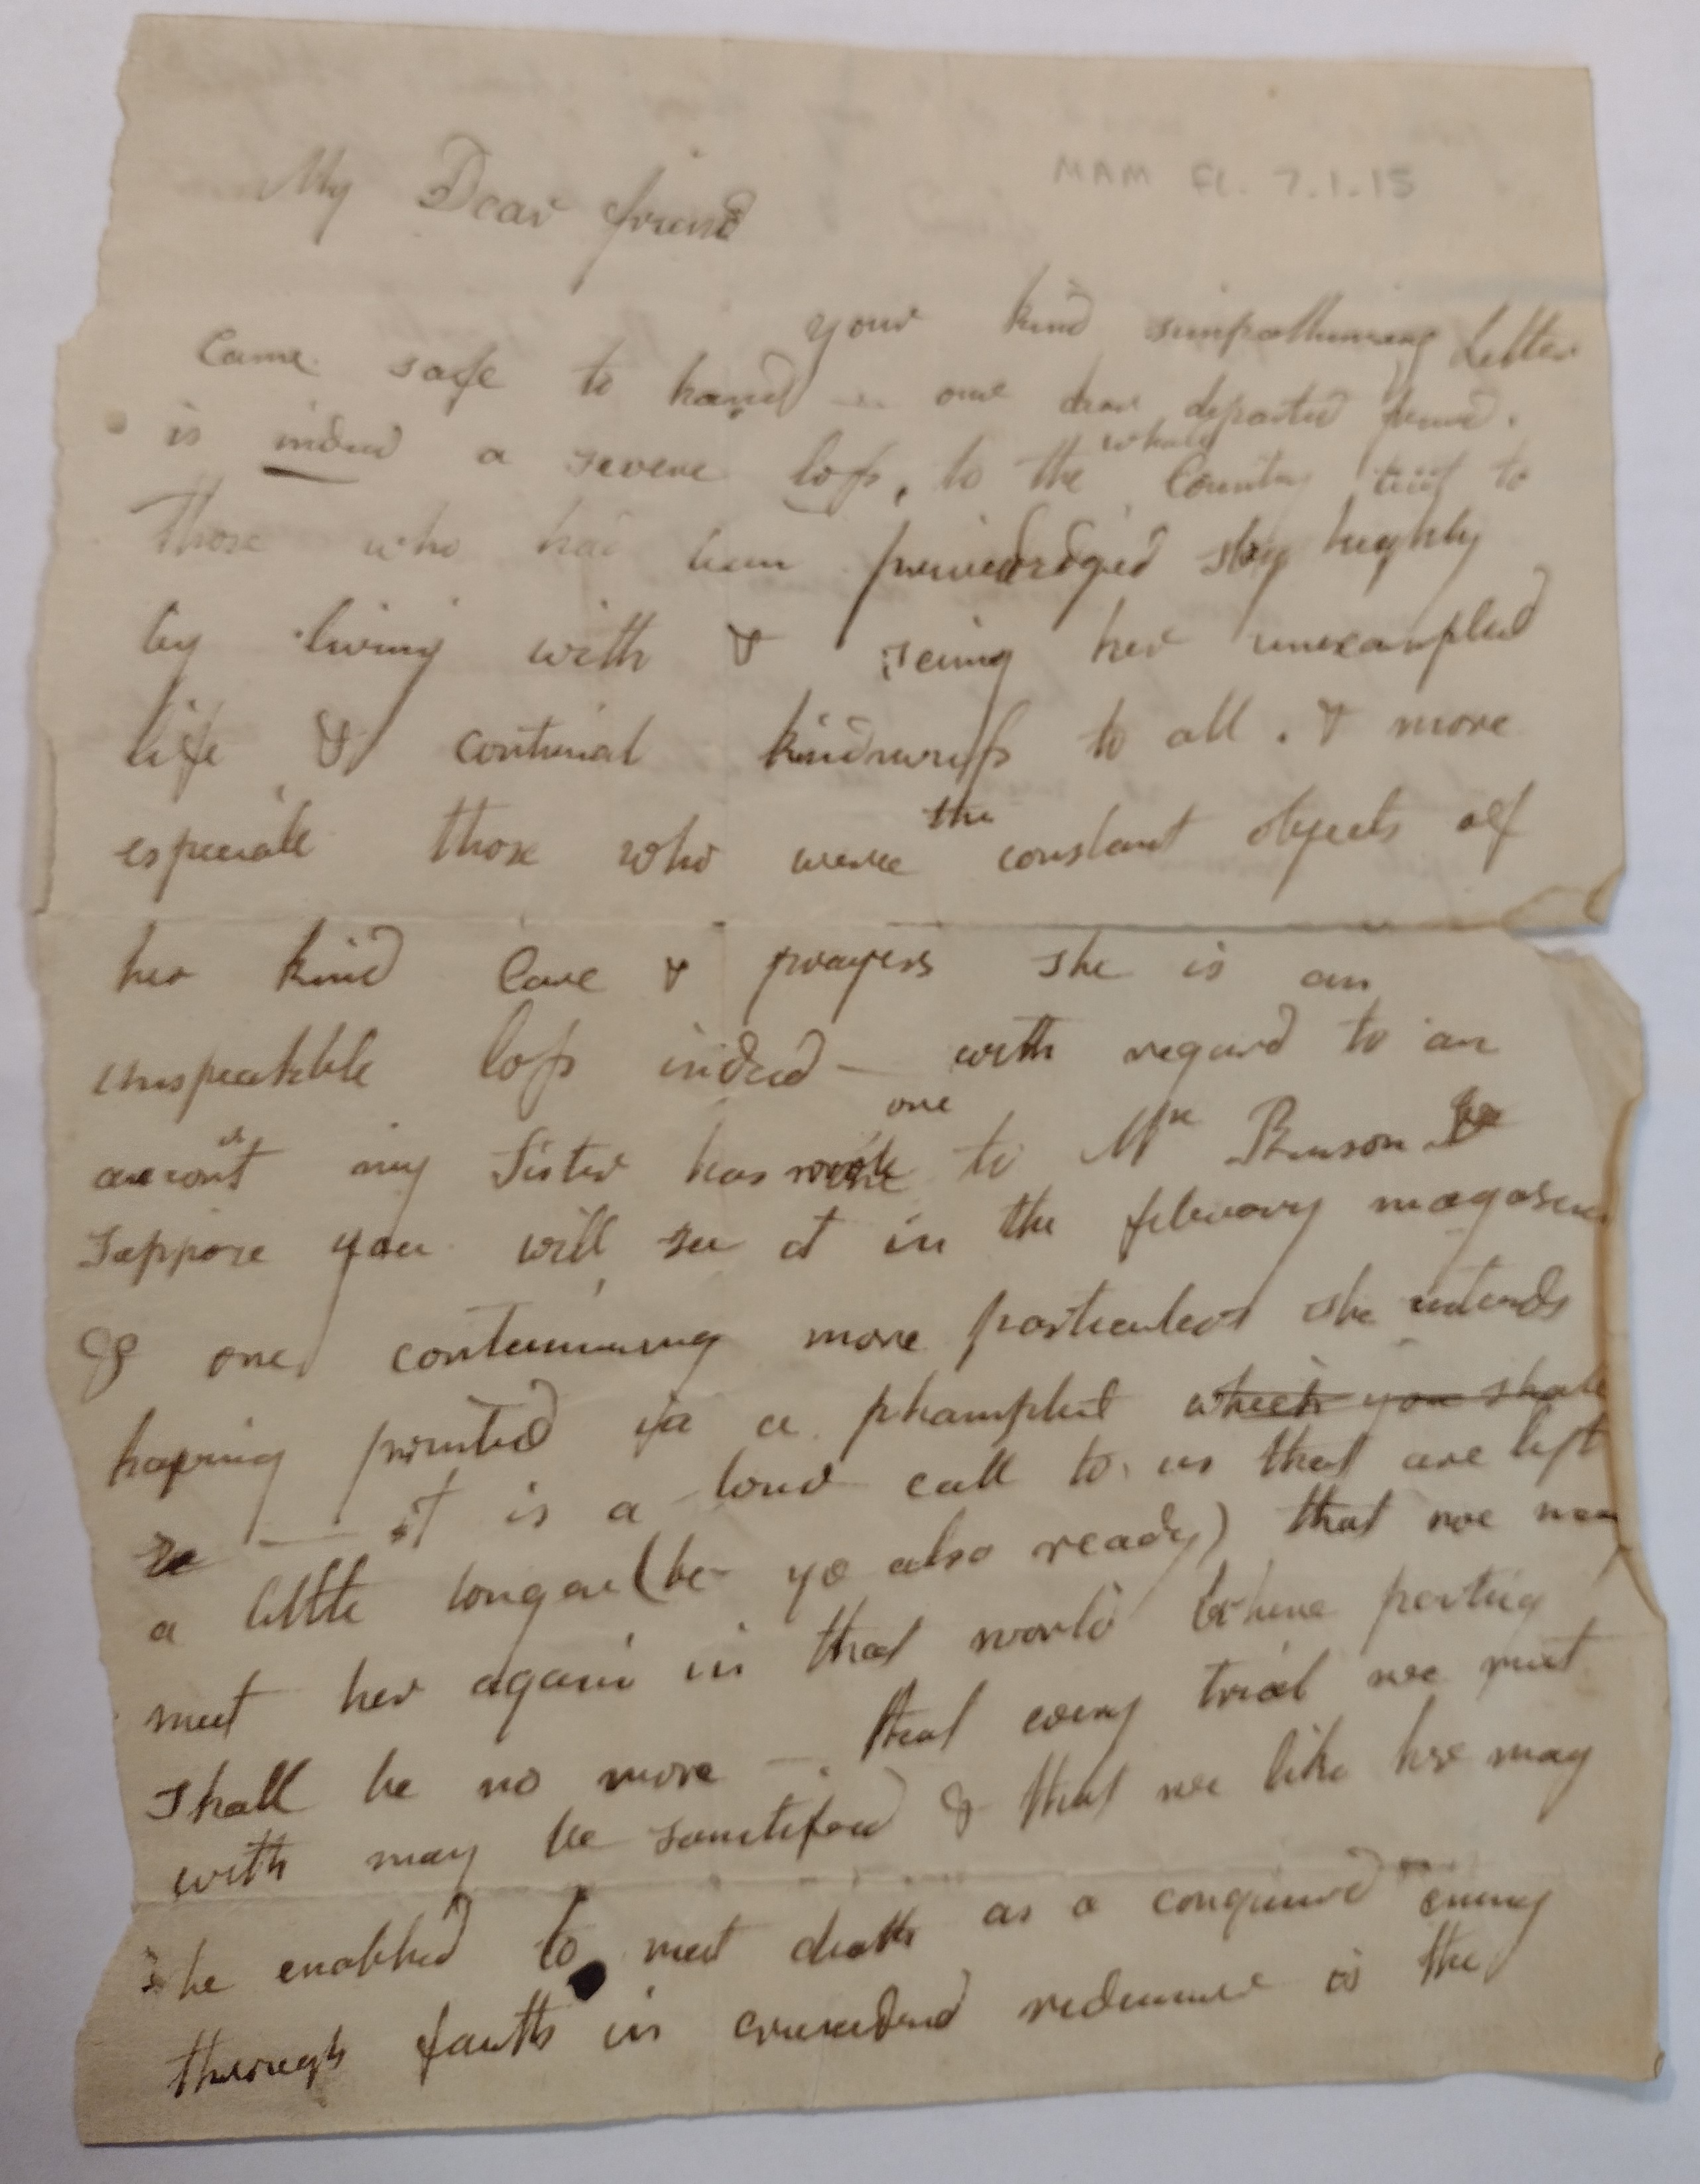 MAM Fl. 7.1.15
My Dear friend
your kind simpathimizing Letter
Came safe to hand — our dear departed friend.
is indeed a severe loss, to the whole Country but to
those who had been priviledged so highly
by living with & seeing her unexampled
life & continial kindness to all. & more
especiale those who were the constant objects off
her kind Care & prayers she is an
unspeakble loss indeed — with regard to an
acount my Sister has wrote one to Mr Benson &
suppose you will see it in the february magasene
& one contunining more particulars she intends
having printed in a phamplut which you shale
se — it is a loud call to us that are left
a little longer (be ye also ready) that we may
meet her again in that world where parting
shall be no more — that every trial we meet
with may be santified & that we like her may
be enabbled to meet death as a conquired enimy
through faith in redeemer is the